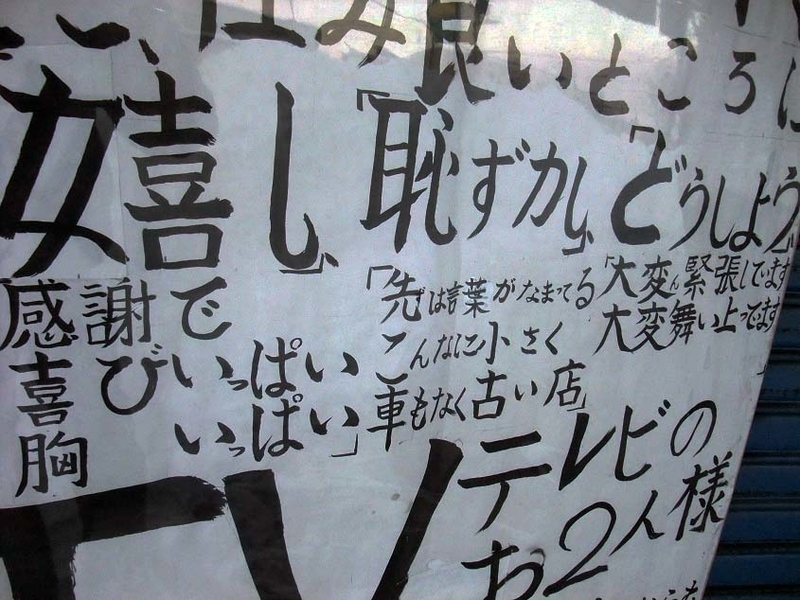 住み良いところに
嬉し」
「恥ずかし」
「どうしよう」
感謝で
喜びいっぱい
胸いっぱい」
「先は言葉がなまってる
こんなに小さく
車もなく古い店」
「大変ん緊張してます
大変舞い上ってます」
TV
テレビの
お2人様